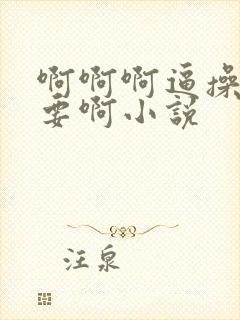 啊啊啊逼操
要啊小说
汪泉